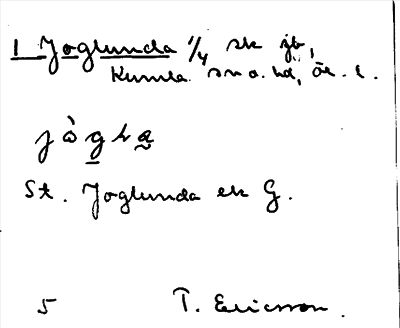 1 Joglunda 1/4 sk jb,
Kumla sn o. hd, Ör. l.
St. Joglunda ek G.
5 T. Ericsson.